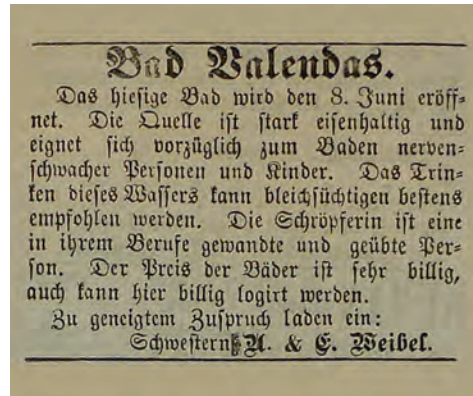 Bad Valendas.
Das hiesige Bad wird den 8. Juni eröff=
net. Die Quelle ist stark eisenhaltig und
eignet sich vorzüglich zum Baden nerven=
schwacher Personen und Kinder. Das Trin=
ken dieses Wassers kann bleichsüchtigen bestens
empfohlen werden. Die Schröpferin ist eine
in ihrem Berufe gewandte und geübte Per=
son. Der Preis der Bäder ist sehr billig,
auch kann hier billig logirt werden.
Zu geneigtem Zuspruch laden ein:
Schwestern A. & E. Weibel.